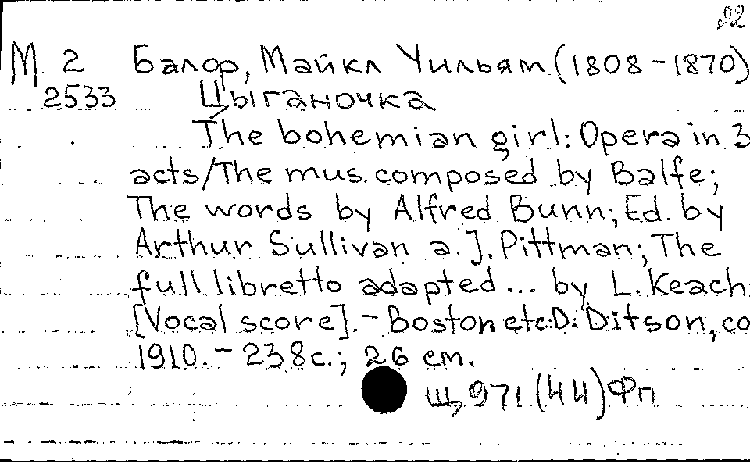 22
М 2 Балор, Майкл Уильям (1808-1870)
2533 Цыганочка
The bohemian girl: Opera in 3
acts/The mus. composed by Balfe;
The words by Alfred Bunn; Ed. by
Arthur Sullivan a. J. Pittman; The
full libretto adapted... by L. Keach
[Vocal score]. - Boston etc.: D: Ditson, co
1910. - 238 с.; 26 cm.
Щ 971(44)Фп